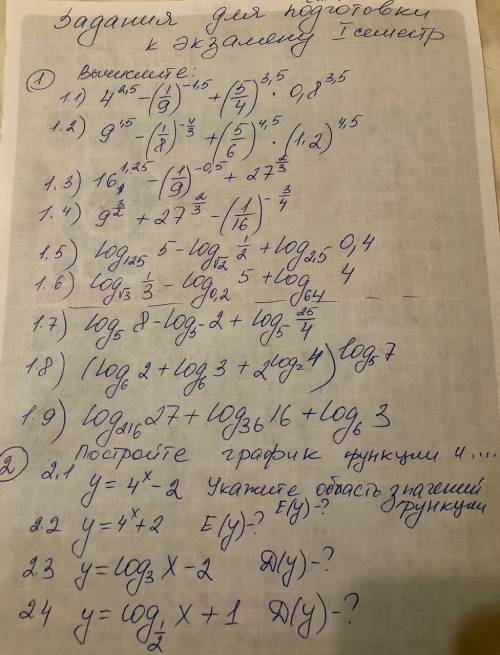 Задания для подготовки
к экзамену I семестр
① Вычислите:
1.1) 4^2,5 − (1/9)^−1,5 + (5/4)^3,5 · 0,8^3,5
1.2) 9^1,5 − (1/8)^−4/3 + (5/6)^4,5 · (1,2)^4,5
1.3) 16^1,25 − (1/9)^−0,5 + 27^2/3
1.4) 9^3/2 + 27^2/3 − (1/16)^−3/4
1.5) log₁₂₅ 5 − log_√2 1/2 + log₂,₅ 0,4
1.6) log_√3 1/3 − log₀,₂ 5 + log₆₄ 4
1.7) log₅ 8 − log₅ 2 + log₅ 25/4
1.8) (log₆ 2 + log₆ 3 + 2^log₂ 4)^log₅ 7
1.9) log₂₁₆ 27 + log₃₆ 16 + log₆ 3
② Постройте график функции и ....
2.1 y = 4^x − 2 Укажите область значений
функции E(y) − ?
2.2 y = 4^x + 2 E(y) − ?
2.3 y = log₃ x − 2 D(y) − ?
2.4 y = log_1/2 x + 1 D(y) − ?